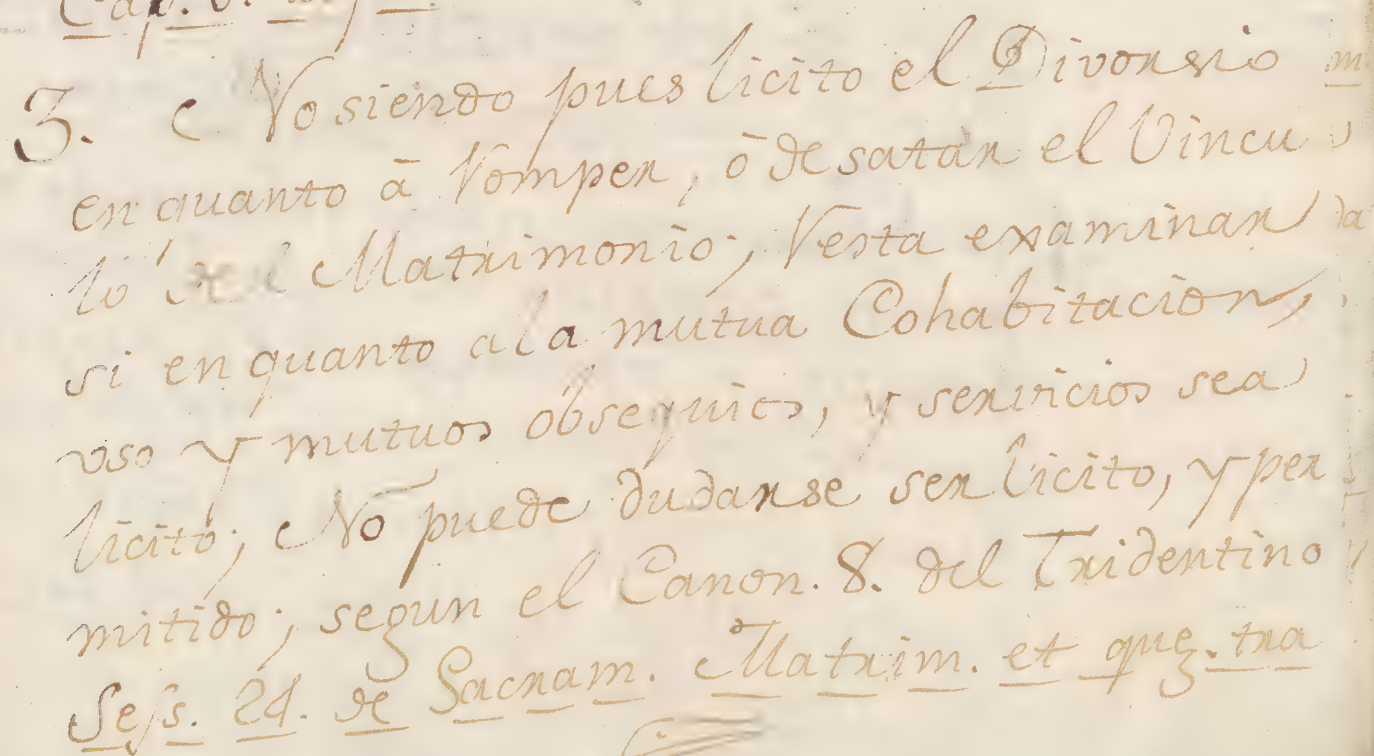 3. No siendo pues licito el Divorsio
en quanto â Romper, ô desatar el Vincu
lo del Matrimonio; Resta examinar
si en quanto a la mutua Cohabitacion,
uso y mutuos obsequios, y servicios sea
licito; No puede dudarse ser licito, y per
mitido; segun el Canon. 8. del Tridentino
Sess. 24. de Sacram. Matrim. et que. tra